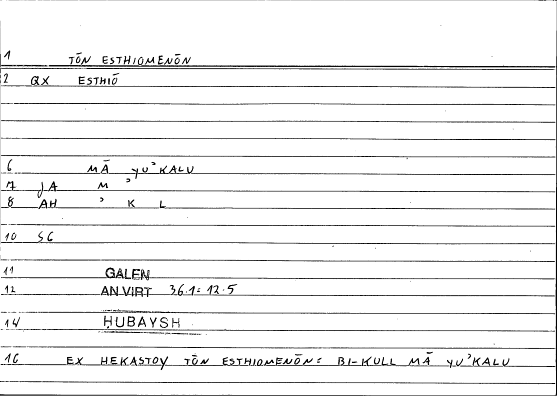 1 TŌN ESTHIOMENŌN
2 QX ESTHIŌ
6 MĀ YUʾKALU
7 JA M ʾ
8 AH ʾ K L
10 SG
11 GALEN
12 AN VIRT 36.1: 12.5
14 ḤUBAYSH
16 EX HEKASTOY TŌN ESTHIOMENŌN: BI-KULL MĀ YUʾKALU